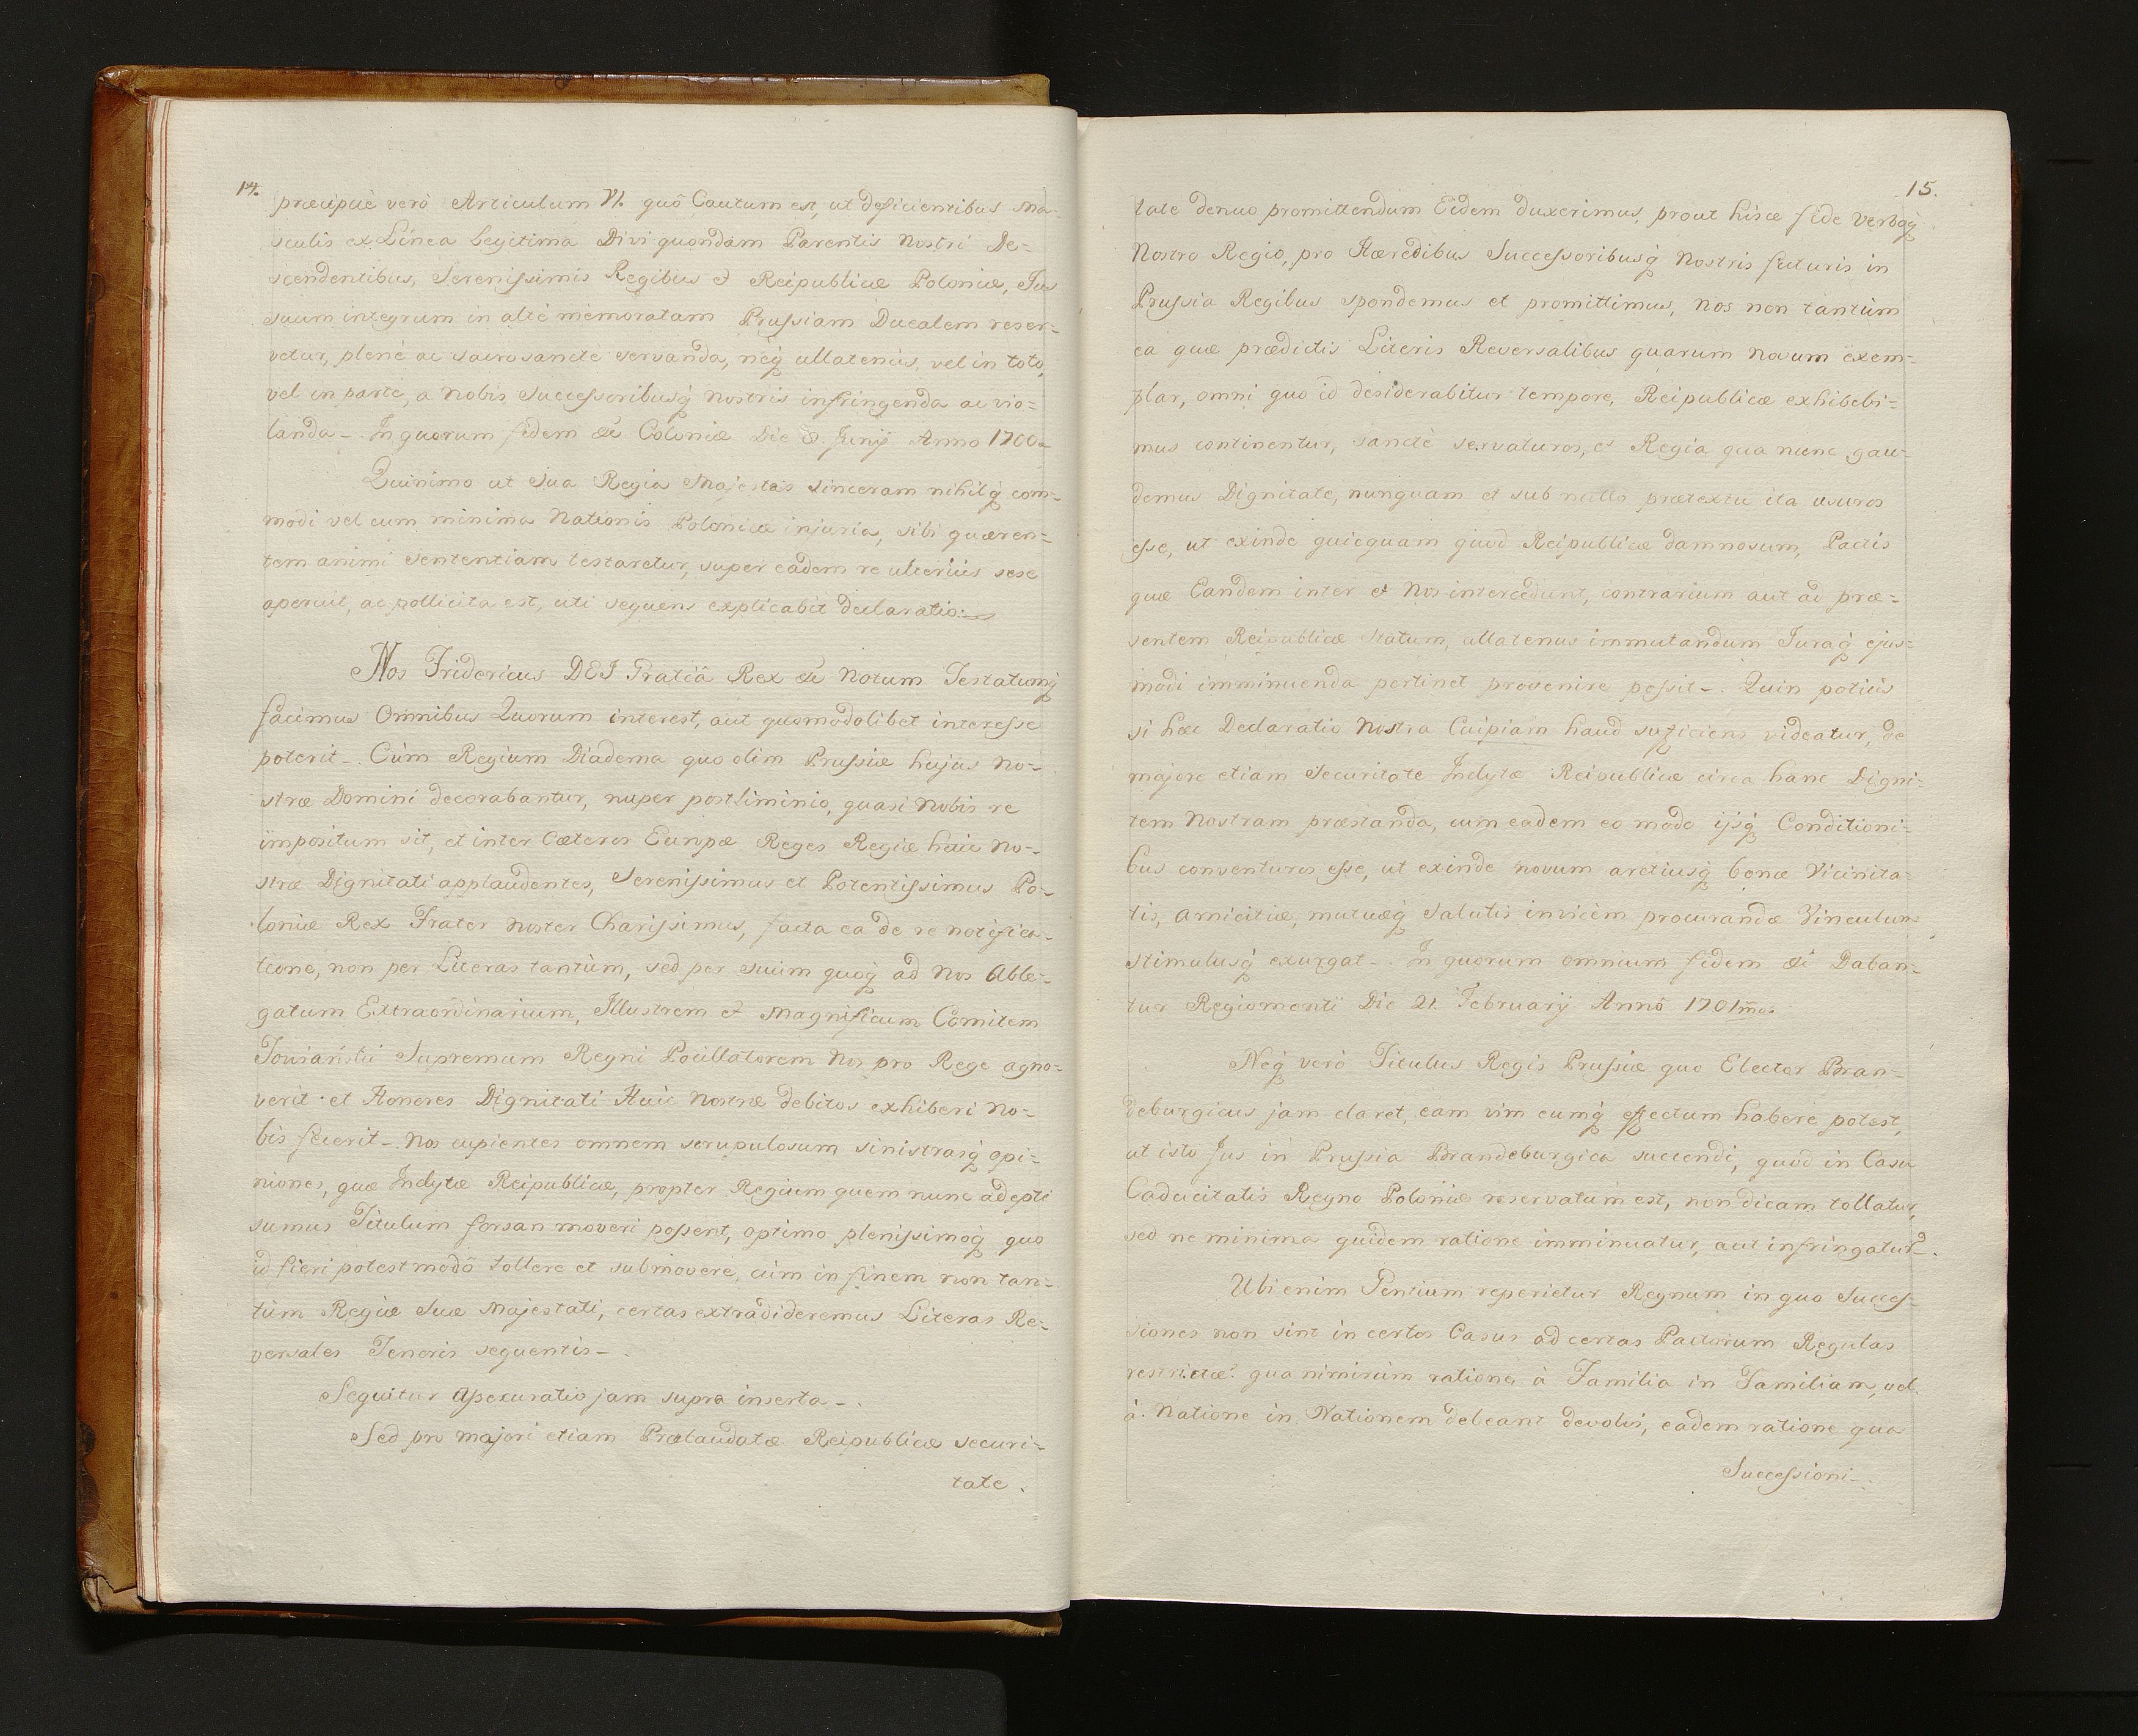 14.
præcipuè verò Articulum VI. quô Cautum est, ut deficientibus Ma-
sculis ex Linea legitima Divi quondam Parentis Nostri De-
scendentibus, Serenissimis Regibus et Reipublicæ Poloniæ, Jus
suum integrum in altè memoratam Prussiam Ducalem reser-
vetur, plenè ac sacrosancte servanda, neq ullatenùs, vel in toto,
vel in parte, a Nobis Successoribusq Nostris infringenda ac vio-
landa -. In quorum fidem &c Coloniæ Die 8. Junij Anno 1700
Quinimo ut Sua Regia Majestas sinceram nihilq com-
modi vel cum minima Nationis Polonicæ injuria, sibi quæren-
tem animi sententiam testaretur, super eadem re ulteriùs sese
aperuit, ac pollicita est, uti sequens explicabit declaratio:
Nos Fridericus DEI Gratiâ Rex &c Notum Testatumq
facimus Omnibus Quorum interest, aut quomodolibet interesse
poterit -. Cùm Regium Diadema quo olim Prussiæ hujus No-
stræ Domini decorabantur, nuper postliminio, quasi Nobis re
impositum sit, et inter Cæteros Europæ Reges Regiæ huic No-
stræ Dignitati applaudentes, Serenissimus et Potentissimus Po-
loniæ Rex Frater Noster Charissimus, facta ea de re notifica-
tione, non per Literas tantùm, sed per suum quoq ad Nos Able-
gatum Extraordinarium, Illustrem et Magnificum Comitem
Towiański Supremum Regni Pocillatorem Nos pro Rege agno-
verit et Honores Dignitati Huic Nostræ debitos exhiberi No-
bis fecerit -. Nos cupientes omnem scrupulosum sinistrasq opi-
niones, quæ Inclytæ Reipublicæ, propter Regium quem nunc adepti
sumus Titulum forsan moveri possent, optimo plenissimoq quo
id fieri potest modô tollere et submovere, cùm in finem non tan-
tùm Regiæ Suæ Majestati, certas extradideremus Literas Re-
versales Tenoris sequentis -.
Sequitur Assecuratio jam supra inserta -.
Sed pro majori etiam Prælaudatæ Reipublicæ securi-
tate.
15.
tate denuo promittendum Eidem duxerimus, prout hisce fide Verboq
Nostro Regio, pro Hæredibus Successoribusq Nostris futuris in
Prussia Regibus spondemus et promittimus, Nos non tantùm
ea quæ prædictis Literis Reversalibus quarum Novum exem-
plar, omni quo id desiderabitur tempore, Reipublicæ exhibebi-
mus continentur, sanctè servaturos, et Regia qua nunc gau-
demus Dignitate, nunquam et sub nullo prætextu ita usuros
esse, ut exinde quicquam quod Reipublicæ damnosum, Pactis
quæ Eandem inter et Nos intercedunt, contrarium aut ad præ-
sentem Reipublicæ Statum, ullatenus immutandum Juraq ejus-
modi imminuenda pertinet provenire possit -. Quin potiùs
si hæc Declaratio Nostra Cuipiam haud sufficiens videatur, de
majore etiam Securitate Inclytæ Reipublicæ circa hanc Digni-
tem Nostram præstanda, cum eadem eo modo ijsq Conditioni-
bus conventuros esse, ut exinde novum arctiusq bonæ Vicinita-
tis, Amicitiæ, mutuæq Salutis invicèm procurandæ Vinculum
stimulusq exurgat -. In quorum omnium fidem &c Daban-
tur Regiomontii Die 21. Februarij Annô 1701mo.
Neq verò Titulus Regis Prussiæ quo Elector Bran-
deburgicus jam claret, eam vim eumq effectum habere potest,
ut isto Jus in Prussia Brandeburgica succendi, quòd in Casu
Caducitatis Regno Poloniæ reservatum est, non dicam tollatur,
sed ne minima quidem ratione imminuatur, aut infringatur -.
Ubi enim Gentium reperietur Regnum in quo Succes-
siones non sint in certos Casus ad certas Pactorum Regulas
restrictæ? qua nimirùm ratione à Familia in Familiam, vel
à Natione in Nationem debeant devolvi, eadem ratione qua
Successioni -.